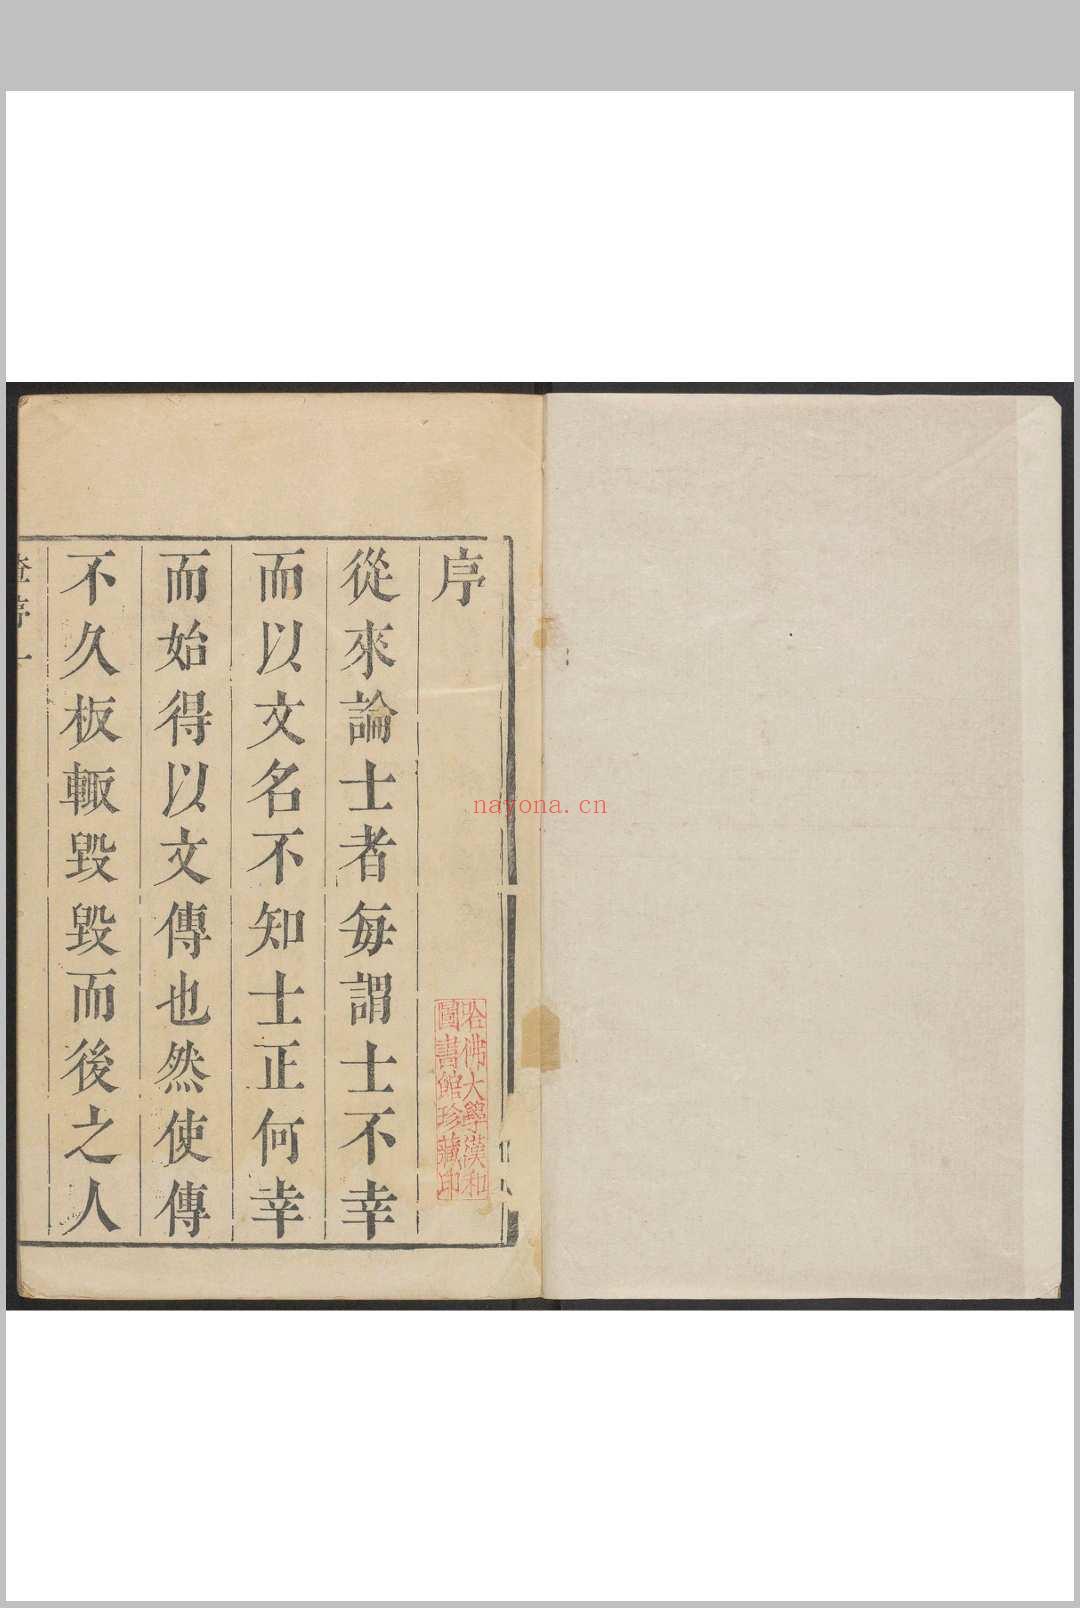 序
從來論士者每謂士不幸
而以文名不知士正何幸
而始得以文傳也然使傳
不久板輙毀毀而後之人
序一
哈佛大學漢和
圖書館珍藏印
nayona.cn